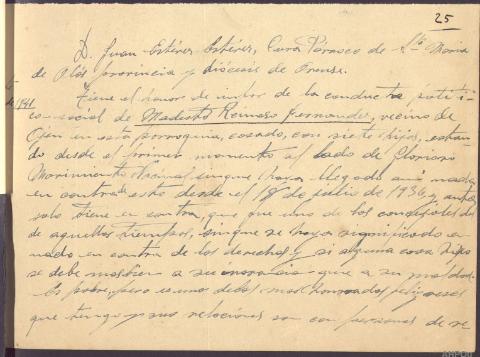 25
D. Juan Estévez Estévez, Cura Párroco de Sta Maria
de Olás provincia y diócesis de Orense.
Tiene el honor de infor de la conducta políti
1941.
co-social de Modesto Reinoso Fernandez, vecino de
en esta parroquia, casado, con siete hijos, estan
do desde el primer momento al lado de Glorioso
Movimiento aunque haya llegado nada
en contra de este desde el 18 de julio de 1936 y antes
solo tiene en contra, que fue uno de los concejales
de aquellos tiempos, aunque se haya significado en
nada en contra de los derechos y si alguna cosa hizo
se debe mas bien a su que a su maldad.
Es pobre, pero es uno de los mas honrados feligreses
que tengo y sus relaciones son con personas de re